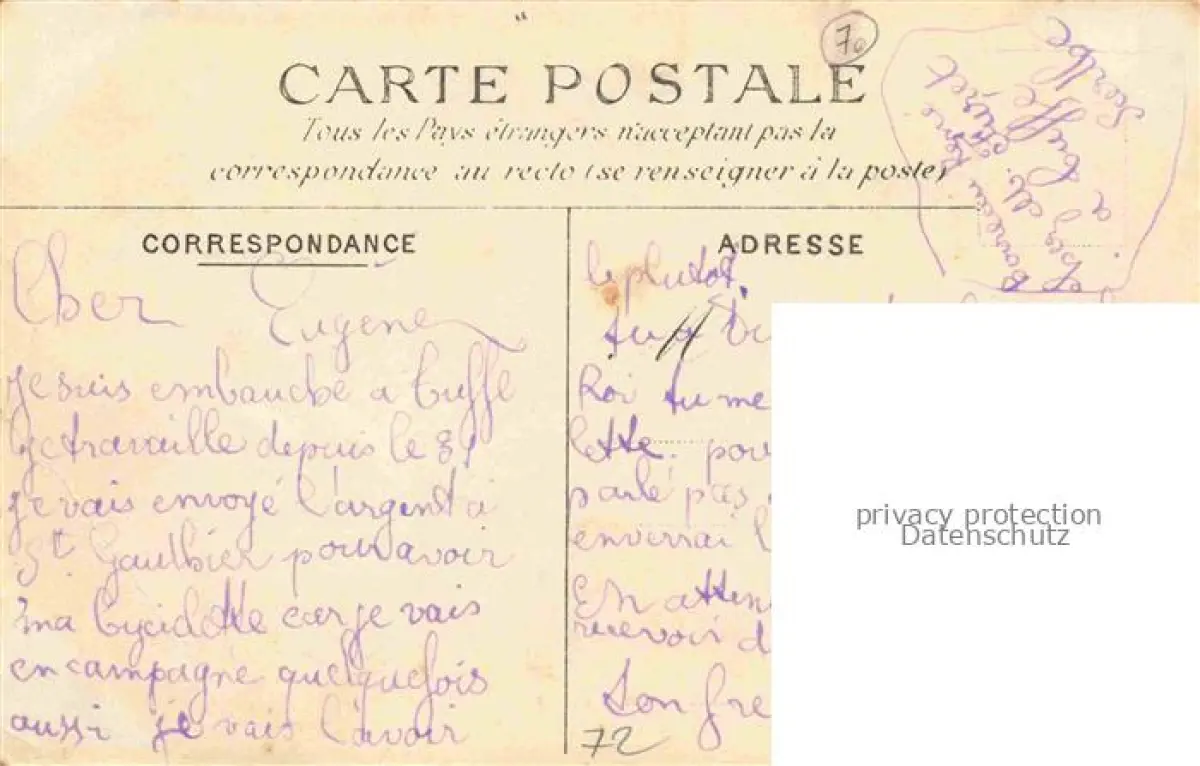 70
CARTE POSTALE
Tous les Pays étrangers n'acceptant pas la
correspondance au recto (se renseigner à la poste)
CORRESPONDANCE
Cher
Eugène
Je suis embauché a Tuffé
Je travaille depuis le 31
je vais envoyé l'argent à
St Gaulbier pour avoir
ma bycidette car je vais
en campagne quelquefois
aussi je vais l'avoir
ADRESSE
le plutot.
tu
Roi tu me
lette. pou
parlé pas
enverrai l
En atten
recevoir d
Ton fre
72
chez M.
a Tuffé
Sarthe
privacy protection
Datenschutz